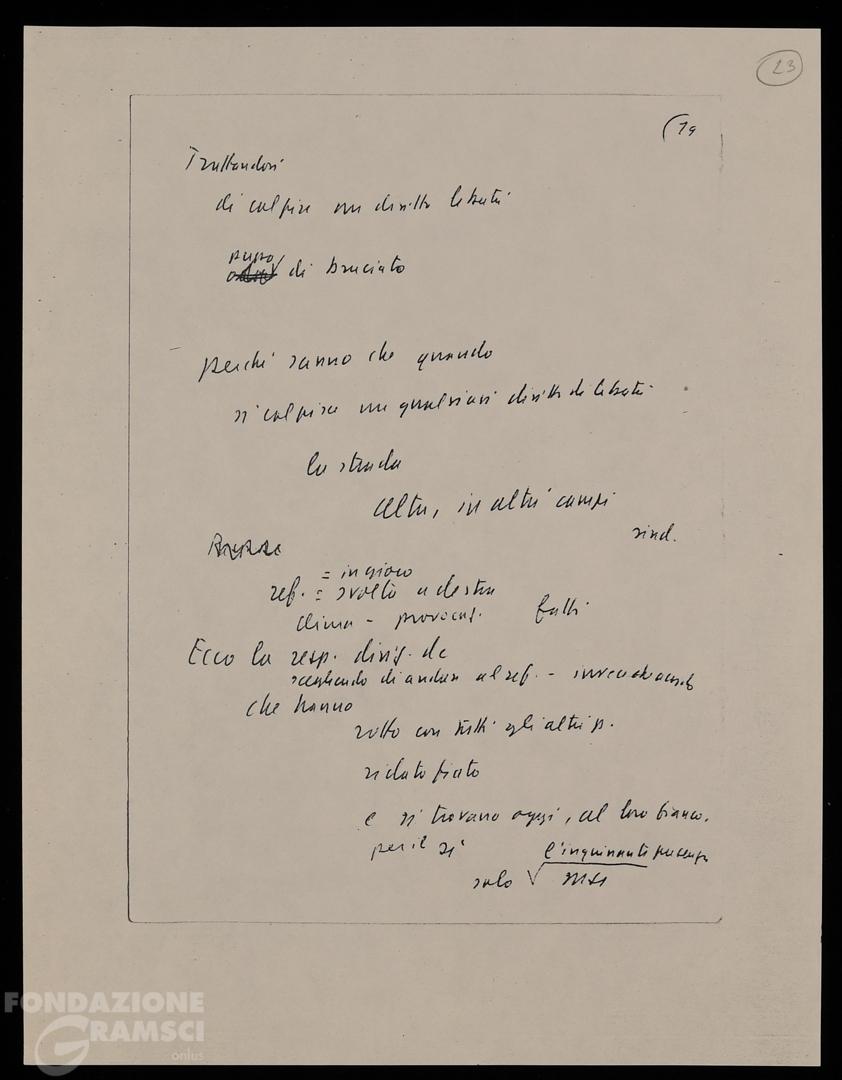 23
19
Trattandosi
di colpire un diritto libertà
puzzo
di bruciato
perché sanno che quando
si colpisce un qualsiasi diritto di libertà
la strada
altri, in altri campi
sind.
= in gioco
ref. = svolta a destra
clima - provocaz. fatti
Ecco la resp. dirig. dc
scegliendo di andare al ref. -
che hanno
rotto con tutti gli altri p.
ridato fiato
e si trovano oggi, al loro fianco,
per il sì
l'inquinante presenza
solo MSI
FONDAZIONE
GRAMSCI
onlus